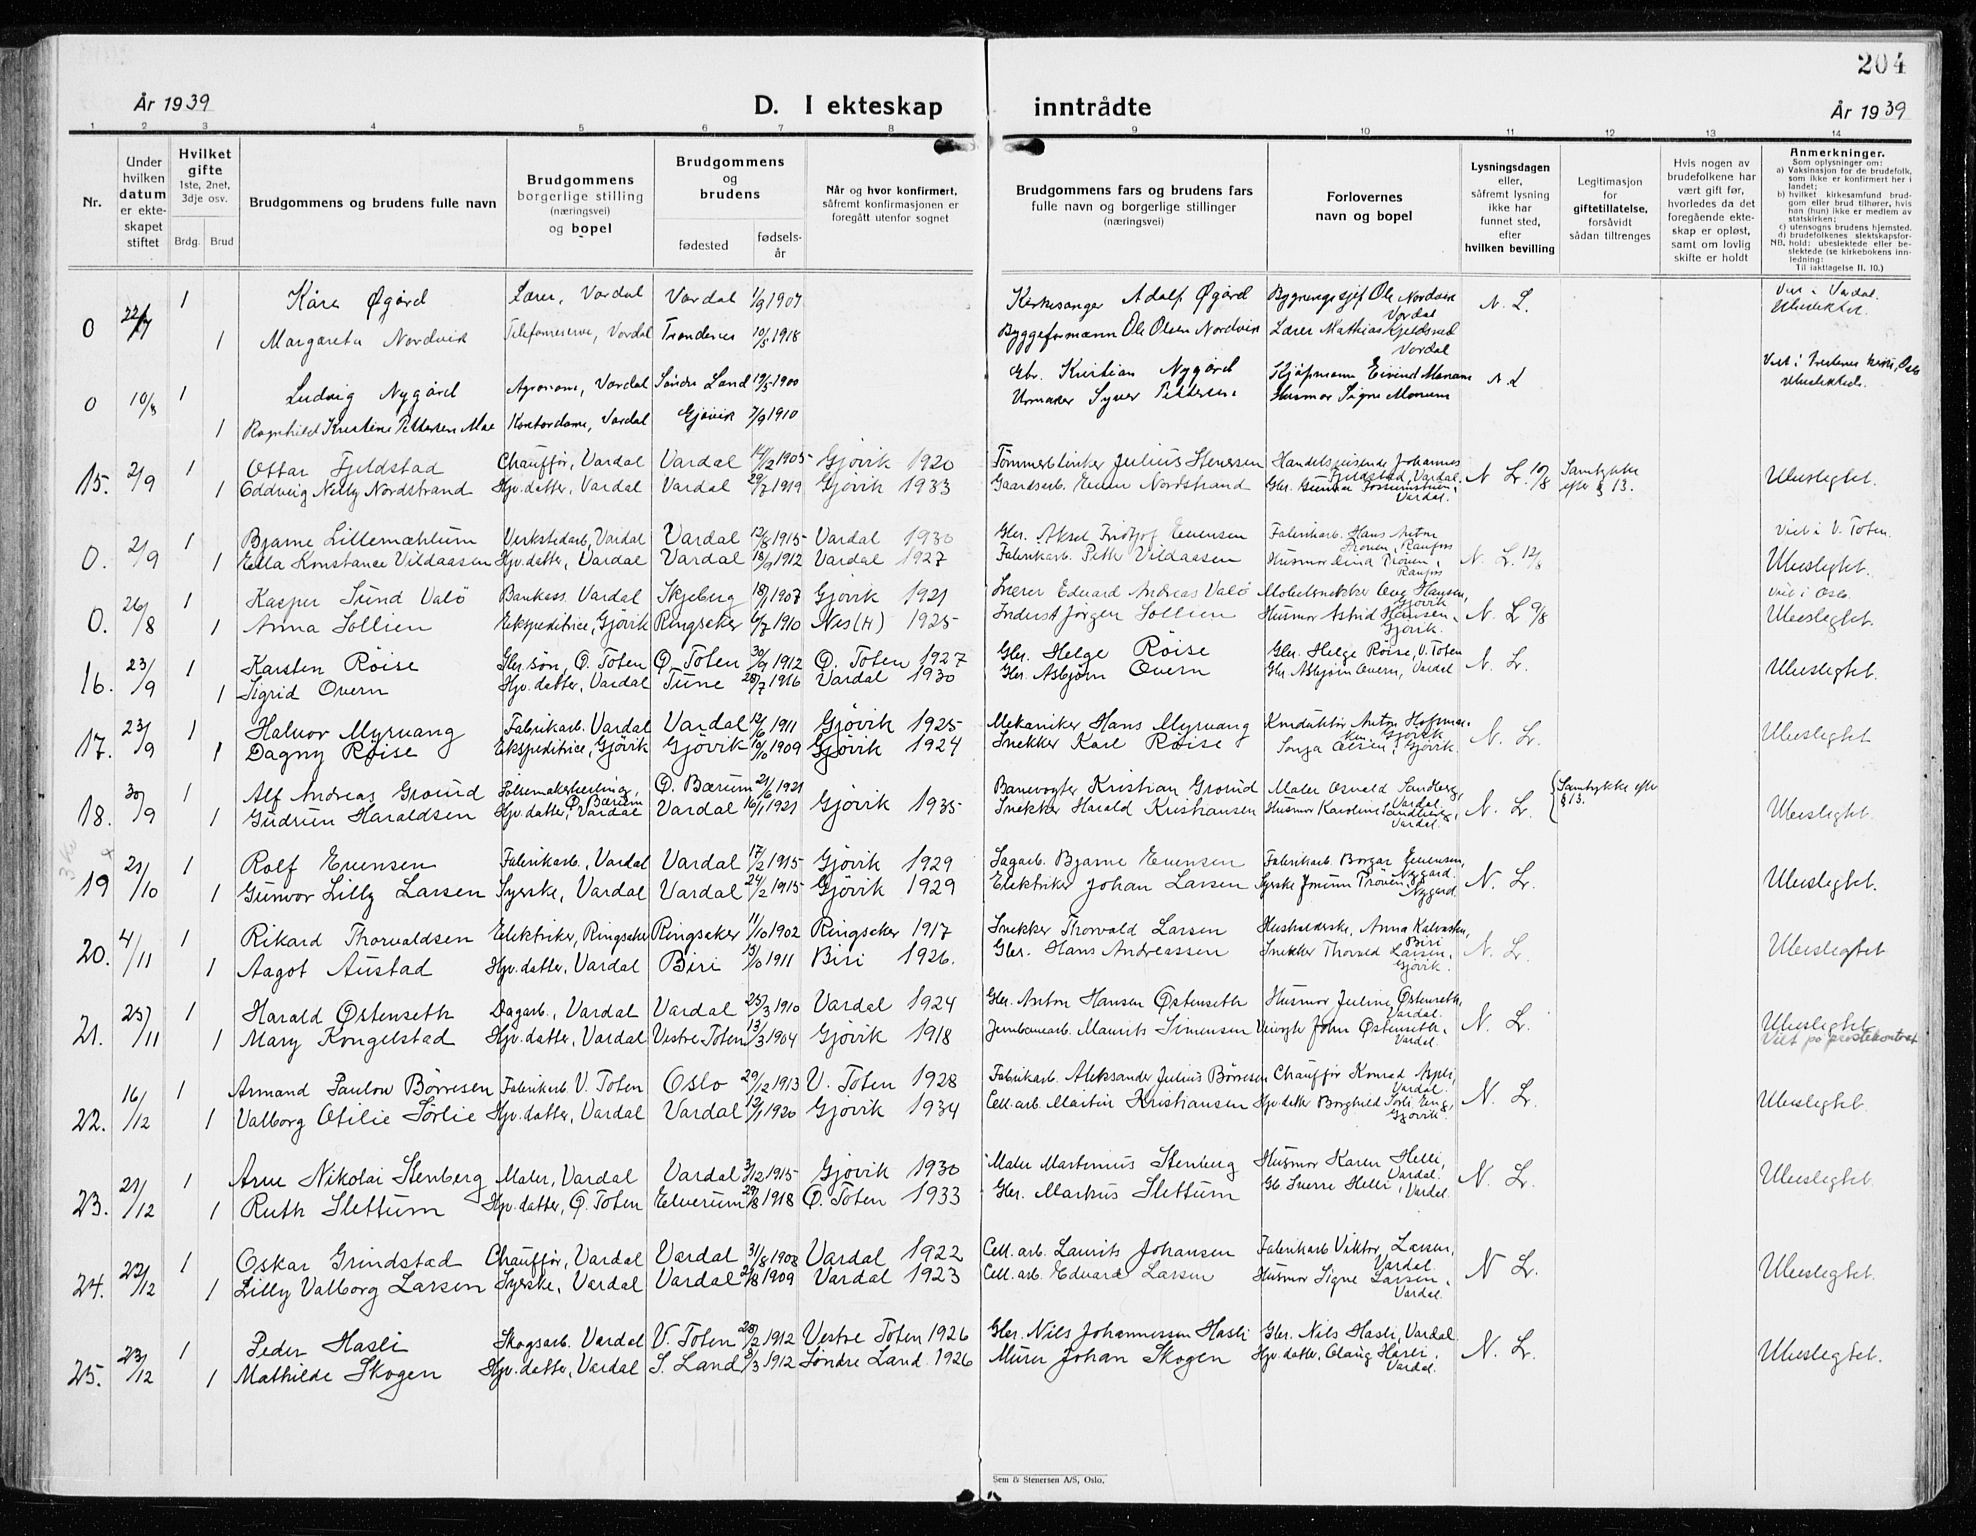 204
År 1939
D. I ekteskap inntrådte
År 1939
1 2 3 4 5 6 7 8 9 10 11 12 13 14
Nr.
Under hvilken datum er ekteskapet stiftet
Hvilket gifte 1ste, 2net, 3dje osv.
Brdg. Brud
Brudgommens og brudens fulle navn
Brudgommens borgerlige stilling (næringsvei) og bopel
Brudgommens og brudens
fødested fødselsår
Når og hvor konfirmert, såfremt konfirmasjonen er foregått utenfor sognet
Brudgommens fars og brudens fars fulle navn og borgerlige stillinger (næringsvei)
Forlovernes navn og bopel
Lysningsdagen eller, såfremt lysning ikke har funnet sted, efter hvilken bevilling
Legitimasjon for giftetillatelse, forsåvidt sådan tiltrenges
Hvis nogen av brudefolkene har vært gift før, hvorledes da det foregående ekteskap er opløst, samt om lovlig skifte er holdt
Anmerkninger.
Som oplysninger om:
a) Vaksinasjon for de brudefolk, som ikke er konfirmert her i landet;
b) hvilket kirkesamfund brudgom eller brud tilhører, hvis han (hun) ikke er medlem av statskirken;
c) utensogns brudens hjemsted.
d) brudefolkenes slektskapsforhold: ubeslektede eller beslektede (se kirkebokens innledning:
NB.
Til iakttagelse II. 10.)
0 22/7 1 Kåre Øgård Lærer, Vardal Vardal 1/9 1907 Kirkesanger Adolf Øgård Bygningssjef Ole Nordvik Vardal N. L. Viet i Vardal. Ubeslektet.
1 Margareta Nordvik Telefonreserve, Vardal Trondenes 10/5 1918 Byggeformann Ole Olsen Nordvik Lærer Mathias Kjeldsrud Vardal
0 10/8 1 Ludvig Nygård Agronom, Vardal Søndre Land 19/5 1900 Gbr. Kristian Nygård Kjøpmann Eivind Monum N. L. Ubeslektede.
1 Ragnhild Kristine Pettersen Moe Kontordame, Vardal Gjøvik 7/9 1910 Urmaker Syver Pettersen Husmor Signe Monum
15. 2/9 1 Ottar Fjeldstad Chauffør, Vardal Vardal 14/2 1905 Gjøvik 1920 Tømmerblinker Julius Stenersen Handelsreisende Johannes Fjeldstad, Vardal. N. L. 10/8 Samtykke efter § 13. Ubeslegtet.
1 Eddveig Nelly Nordstrand Hjv. datter, Vardal Vardal 29/7 1919 Gjøvik 1933 Gaardsarb. Einar Nordstrand Gbr. Gunnar Fossumstuen, Vardal.
0. 2/9 1 Bjarne Lillemæhlum Verkstedarb, Vardal Vardal 12/8 1915 Vardal 1930 Gbr. Aksel Fridtjof Evensen Fabrikarb. Hans Anton Trøen, Raufoss N. L. 12/8 Viet i V. Toten. Ubeslegtet.
1 Ella Konstance Vildaasen Hjv. datter, Vardal Vardal 18/9 1912 Vardal 1927 Fabrikarb. Petter Vildaasen Husmor Lina Trøen, Raufoss
0. 26/8 1 Kasper Sund Valö Bankass. Vardal Skjeberg 18/1 1907 Gjøvik 1921 Snekker Eduard Andreas Valö Møbelsnekker Aug. Hansen, Gjøvik N. L. 9/8 Viet i Oslo. Ubeslegtet.
1 Anna Sollien Ekspeditrice, Gjøvik Ringsaker 6/7 1910 Nes (H) 1925 Inderst Jørgen Sollien Husmor Astrid Hansen, Gjøvik.
16. 23/9 1 Karsten Røise Gbr. søn, Ø. Toten Ø. Toten 30/9 1912 Ø. Toten 1927 Gbr. Helge Røise Gbr. Helge Røise, V. Toten N. L. Ubeslegtet.
1 Sigrid Overn Hjv. datter, Vardal Tune 28/7 1916 Vardal 1930 Gbr. Asbjørn Overn Gbr. Asbjørn Overn, Vardal
17. 23/9 1 Halvor Myrvang Fabrikarb. Vardal Vardal 12/6 1911 Gjøvik 1925 Mekaniker Hans Myrvang Konduktør Anton Hofmoen, Gjøvik N. L. Ubeslegtet
1 Dagny Røise Ekspeditrice, Gjøvik Gjøvik 16/10 1909 Gjøvik 1924 Snekker Karl Røise Sonja Olsen, Gjøvik.
18. 30/9 1 Alf Andreas Grorud Pølsemakerlærling, Ø. Bærum Ø. Bærum 21/6 1921 Banevogter Kristian Grorud Maler Osvald Sandberg, Vardal N. L. Samtykke efter § 13. Ubeslegtet.
1 Gudrun Haraldsen Hjv. datter, Vardal Vardal 16/1 1921 Gjøvik 1935 Snekker Harald Kristiansen Husmor Karoline Sandberg, Vardal.
19 21/10 1 Rolf Evensen Fabrikarb., Vardal Vardal 17/2 1915 Gjøvik 1929 Sagarb. Bjarne Evensen Fabrikarb. Borgar Evensen, Nygard. N. L. Ubeslegtet.
1 Gunvor Lilly Larsen Syerske, Vardal Vardal 24/2 1915 Gjøvik 1929 Elektriker Johan Larsen Syerske Jorunn Trøen, Nygard
20. 4/11 1 Rikard Thorvaldsen Elektriker, Ringsaker Ringsaker 11/10 1902 Ringsaker 1917 Snekker Thorvald Larsen Husholderske, Anna Kalvasken, Biri N. L. Ubeslegtet
1 Aagot Austad Hjv. datter, Vardal Biri 13/10 1911 Biri 1926. Gbr. Hans Andreassen Snekker Thorvald Larsen, Gjøvik.
21. 25/11 1 Harald Østenseth Dagarb., Vardal Vardal 25/3 1910 Vardal 1924 Gbr. Anton Hansen Østenseth Husmor Juline Østenseth, Vardal. N. L. Ubeslegtet
1 Mary Kongelstad Hjv. datter, Vardal Vestre Toten 13/3 1904 Gjøvik 1918 Jernbanearb. Maurits Simensen Veivogter John Østenseth, Vardal. Viet på prestekontoret
22. 16/12 1 Armand Paulow Børresen Fabrikarb. V. Toten Oslo 29/12 1913 V. Toten 1928 Fabrikarb. Aleksander Julius Børresen Chauffør Konrad Aspli, Vardal. N. L. Ubeslegtet.
1 Valborg Otilie Sørlie Hjv. datter, Vardal Vardal 12/1 1920 Gjøvik 1934 Cell. arb. Martin Kristiansen Hjv. datter Borghild Sorli Eng, Gjøvik.
23. 21/12 1 Arne Nikolai Stenberg Maler, Vardal Vardal 3/12 1915 Gjøvik 1930 Maler Martinius Stenberg Husmor Karen Helli, Vardal. N. L. Ubeslegtet.
1 Ruth Slettum Hjv. datter, Ø. Toten Elverum 29/8 1918 Ø. Toten 1933 Gbr. Markus Slettum Gb. Sverre Helli, Vardal.
24. 22/12 1 Oskar Grindstad Chauffør, Vardal Vardal 31/8 1908 Vardal 1922 Cell. arb. Laurits Johansen Fabrikarb. Viktor Larsen, Vardal. N L. Ubeslegtet.
1 Lilly Valborg Larsen Syerske, Vardal Vardal 21/8 1909 Vardal 1923 Cell. arb. Edvard Larsen Husmor Signe Larsen, Vardal.
25. 23/12 1 Peder Hasli Skogsarb. Vardal V. Toten 28/2 1912 Vestre Toten 1926 Gbr. Nils Johannessen Hasli Gbr. Nils Hasli, Vardal N. L. Ubeslegtet.
1 Mathilde Skogen Hjv. datter, Vardal S. Land 3/3 1912 Søndre Land. 1926 Murer Johan Skogen Hjv. datter, Olaug Hasli, Vardal.
Sem & Stenersen A/S, Oslo.